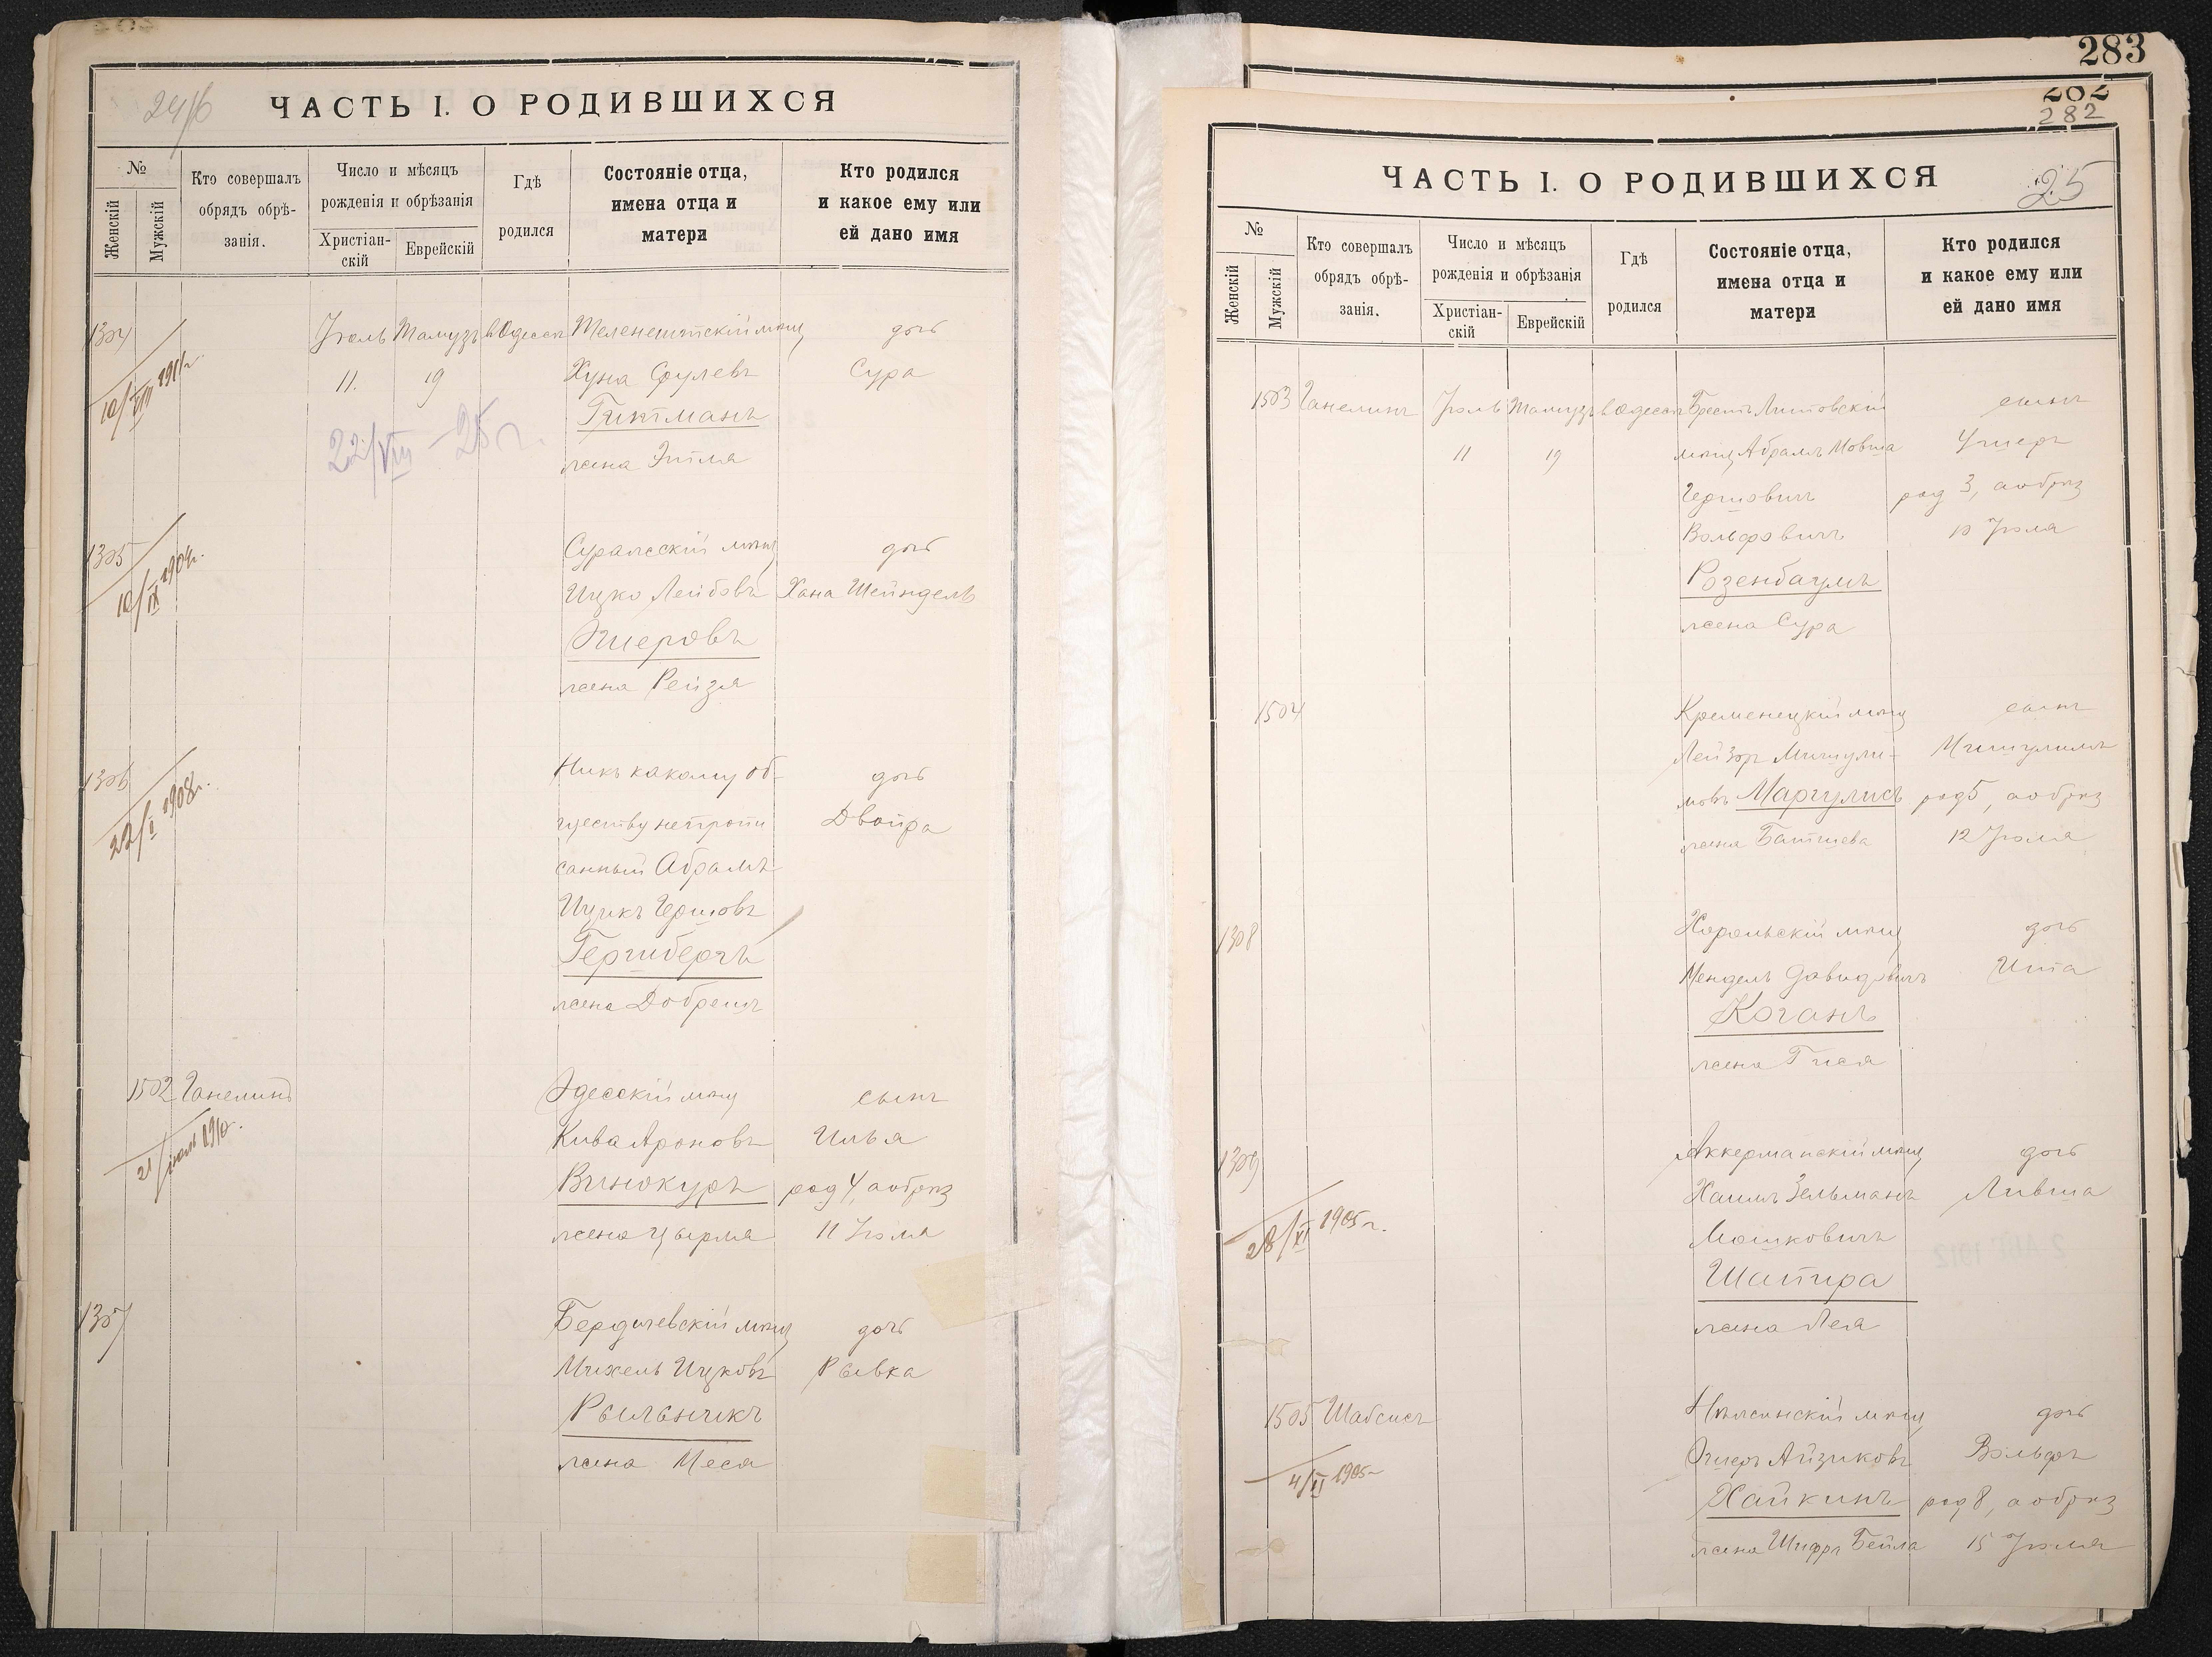 24/6
ЧАСТЬ I. О РОДИВШИХСЯ
№
Женскій
Мужскій
Кто совершалъ
обрядъ обрѣ-
занія.
Число и мѣсяцъ
рожденія и обрѣзанія
Христіан-
скій
Еврейскій
Гдѣ
родился
Состояніе отца,
имена отца и
матери
Кто родился
и какое ему или
ей дано имя
1304 Іюль Тамузъ в Одессѣ Теленештскій мѣщ дочь
10/VIII 1911 г. 11. 19 Хуна Срулевъ Сура
Гитманъ
22/VIII - 25 г.
жена Этля
1305 Суражскій мѣщ дочь
10/IX 1904 г. Ицко Лейбовъ Хана Шейндель
Эшеровъ
жена Рейзя
1306 Никъ какому об- дочь
22/I 1908 г. ществу неприпи Двойра
санный Абрамъ
Ицикъ Гершовъ
Гершбергъ
жена Добрешъ
1502 Ганелинъ Одесскій мѣщ сынъ
21/ 1910 г. Кива Ароновъ Илья
Винокуръ род 4, а обрѣз
жена Цырля 11 Іюля
1307 Бердичевскій мѣщ дочь
Михель Ицковъ Рывка
Рыльникъ
жена Меся
283
282
282
25
ЧАСТЬ I. О РОДИВШИХСЯ
№
Женскій
Мужскій
Кто совершалъ
обрядъ обрѣ-
занія.
Число и мѣсяцъ
рожденія и обрѣзанія
Христіан-
скій
Еврейскій
Гдѣ
родился
Состояніе отца,
имена отца и
матери
Кто родился
и какое ему или
ей дано имя
1503 Ганелинъ Іюль Тамузъ в Одессѣ Брестъ Литовскій сынъ
11 19 мѣщ Абрамъ Мовша Ушеръ
Гершовичъ род 3, а обрѣз
Вольфовичъ 10 Іюля
Розенбаумъ
жена Сура
1504 Кременецкій мѣщ сынъ
Лейзоръ Мишули- Мишулимъ
мовъ Маргулисъ род 5, а обрѣз
жена Батшева 12 Іюля
1308 Хорольскій мѣщ дочь
Мендель Давидовичъ Ита
Коганъ
жена Гися
1309 Аккерманскій мѣщ дочь
Хаимъ Зельманъ Ливша
28/XI 1905 г. Мошковичъ
Шапира
жена Лея
1505 Шабсисъ Нѣжинскій мѣщ дочь
Эшеръ Айзиковъ Вольфъ
4/II 1905 г. Хайкинъ род 8, а обрѣз
жена Шифра Бейла 15 Іюля